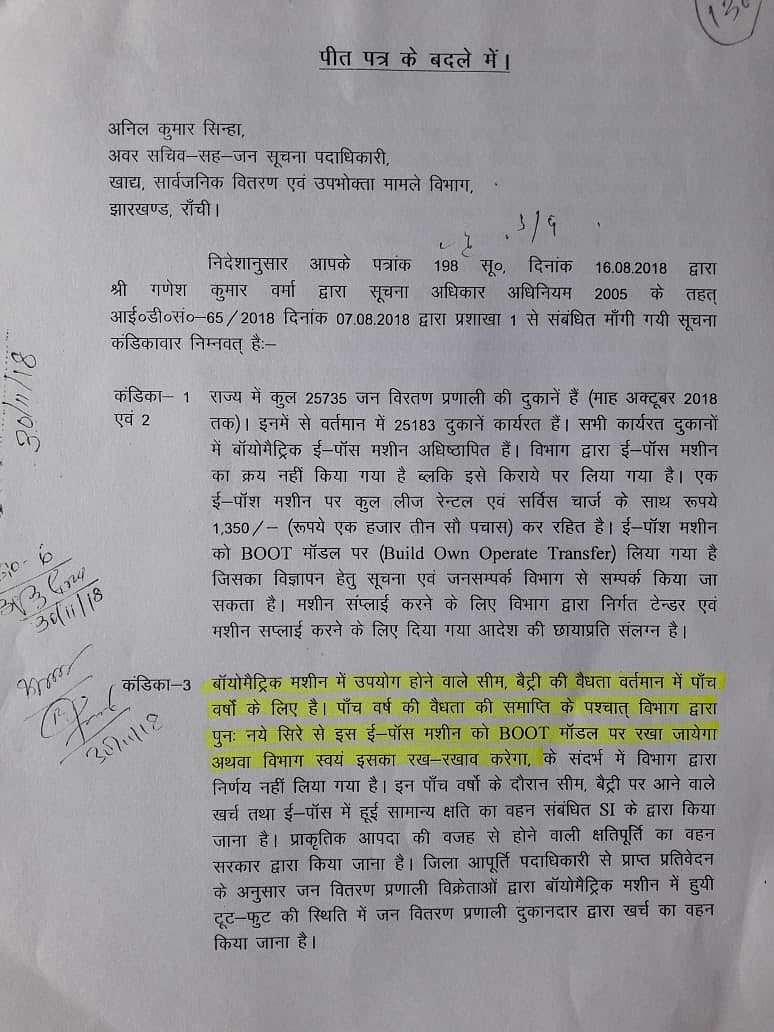 130
पीत पत्र के बदले में।
अनिल कुमार सिन्हा,
अवर सचिव–सह–जन सूचना पदाधिकारी,
खाद्य, सार्वजनिक वितरण एवं उपभोक्ता मामले विभाग,
झारखण्ड, राँची।
निदेशानुसार आपके पत्रांक 198 सू०, दिनांक 16.08.2018 द्वारा
श्री गणेश कुमार वर्मा द्वारा सूचना अधिकार अधिनियम 2005 के तहत्
आई०डी०सं०–65/2018 दिनांक 07.08.2018 द्वारा प्रशाखा 1 से संबंधित माँगी गयी सूचना
कंडिकावार निम्नवत् हैः–
कंडिका– 1 राज्य में कुल 25735 जन विरतण प्रणाली की दुकानें हैं (माह अक्टूबर 2018
एवं 2 तक)। इनमें से वर्तमान में 25183 दुकानें कार्यरत हैं। सभी कार्यरत दुकानों
में बॉयोमैट्रिक ई–पॉस मशीन अधिष्ठापित हैं। विभाग द्वारा ई–पॉस मशीन
का क्रय नहीं किया गया है ब्लकि इसे किराये पर लिया गया है। एक
ई–पॉश मशीन पर कुल लीज रेन्टल एवं सर्विस चार्ज के साथ रूपये
1,350/– (रूपये एक हजार तीन सौ पचास) कर रहित है। ई–पॉश मशीन
को BOOT मॉडल पर (Build Own Operate Transfer) लिया गया है
जिसका विज्ञापन हेतु सूचना एवं जनसम्पर्क विभाग से सम्पर्क किया जा
सकता है। मशीन संप्लाई करने के लिए विभाग द्वारा निर्गत टेन्डर एवं
मशीन सप्लाई करने के लिए दिया गया आदेश की छायाप्रति संलग्न है।
कंडिका–3 बॉयोमैट्रिक मशीन में उपयोग होने वाले सीम, बैट्री की वैधता वर्तमान में पाँच
वर्षों के लिए है। पाँच वर्ष की वैधता की समाप्ति के पश्चात् विभाग द्वारा
पुनः नये सिरे से इस ई–पॉस मशीन को BOOT मॉडल पर रखा जायेगा
अथवा विभाग स्वयं इसका रख–रखाव करेगा, के संदर्भ में विभाग द्वारा
निर्णय नहीं लिया गया है। इन पाँच वर्षो के दौरान सीम, बैट्री पर आने वाले
खर्च तथा ई–पॉस में हूई सामान्य क्षति का वहन संबंधित SI के द्वारा किया
जाना है। प्राकृतिक आपदा की वजह से होने वाली क्षतिपूर्ति का वहन
सरकार द्वारा किया जाना है। जिला आपूर्ति पदाधिकारी से प्राप्त प्रतिवेदन
के अनुसार जन वितरण प्रणाली विक्रेताओं द्वारा बॉयोमैट्रिक मशीन में हुयी
टूट–फुट की स्थिति में जन वितरण प्रणाली दुकानदार द्वारा खर्च का वहन
किया जाना है।
30/11/18
30/11/18
30/11/18